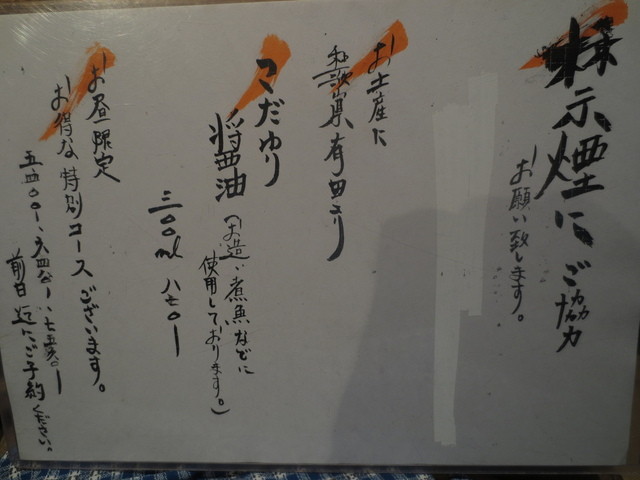 禁煙にご協力
お願い致します。
お土産に
和歌山県有田より
こだわり
醤油(お造、煮魚などに
使用しております。)
三〇〇ml 八七〇ー
お昼限定
お得な特別コースございます。
五四〇〇ー、六四八〇ー、七五六〇ー
前日迄にご予約ください。